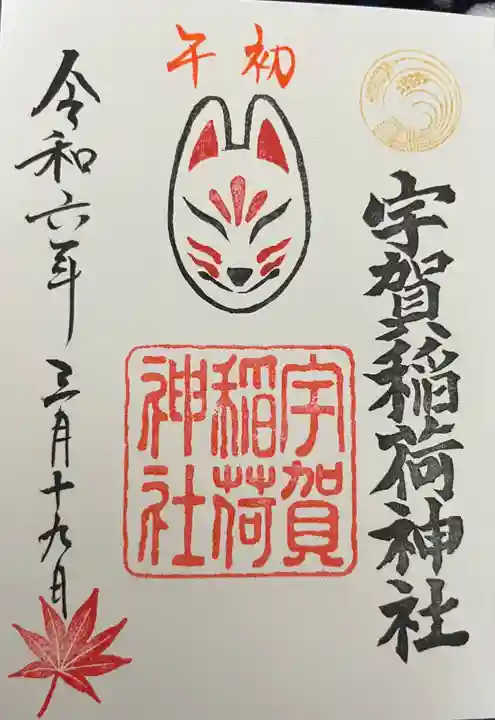 初午
宇賀稲荷神社
宇賀
稲荷
神社
令和六年 三月十九日